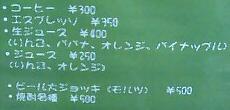 ・コーヒー ¥300
・エスプレッソ ¥350
・生ジュース ¥400
(りんご、バナナ、オレンジ、パイナップル)
・ジュース ¥250
(りんご、オレンジ)
・ビール大ジョッキ(モルツ) ¥500
・焼酎各種 ¥500